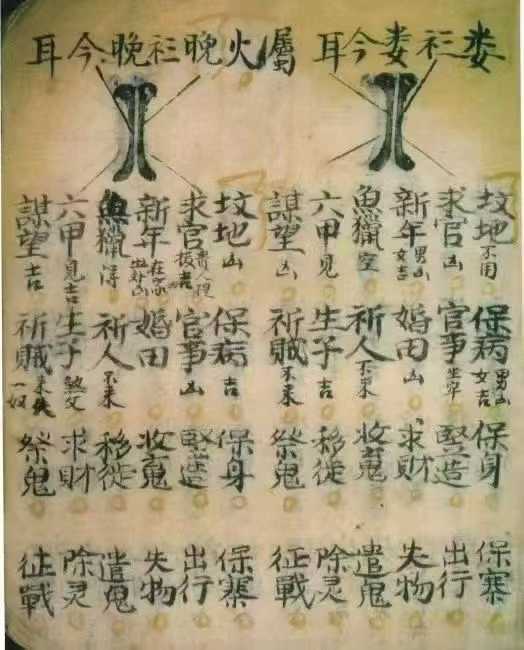 娄衫娄今耳
坟地不用 保病男凶女吉 保身 保寨
求官凶 官事坐牢 竪造 出行
新年男凶女吉 婚田凶 求財 失物
魚獵空 祈人不來 收鬼 遣鬼
六甲見 生子吉 移徙 除灵
謀望凶 祈賊不來 祭鬼 征戰
屬火晚衫晚今耳
坟地凶 保病吉 保身 保寨
求官貴人提拔吉 官事凶 竪造 出行
新年在家出外凶 婚田 收鬼 失物
魚獵得 祈人不來 移徙 遣鬼
六甲見吉 生子煞父 求財 除灵
謀望吉 祈賊來一奴 祭鬼 征戰